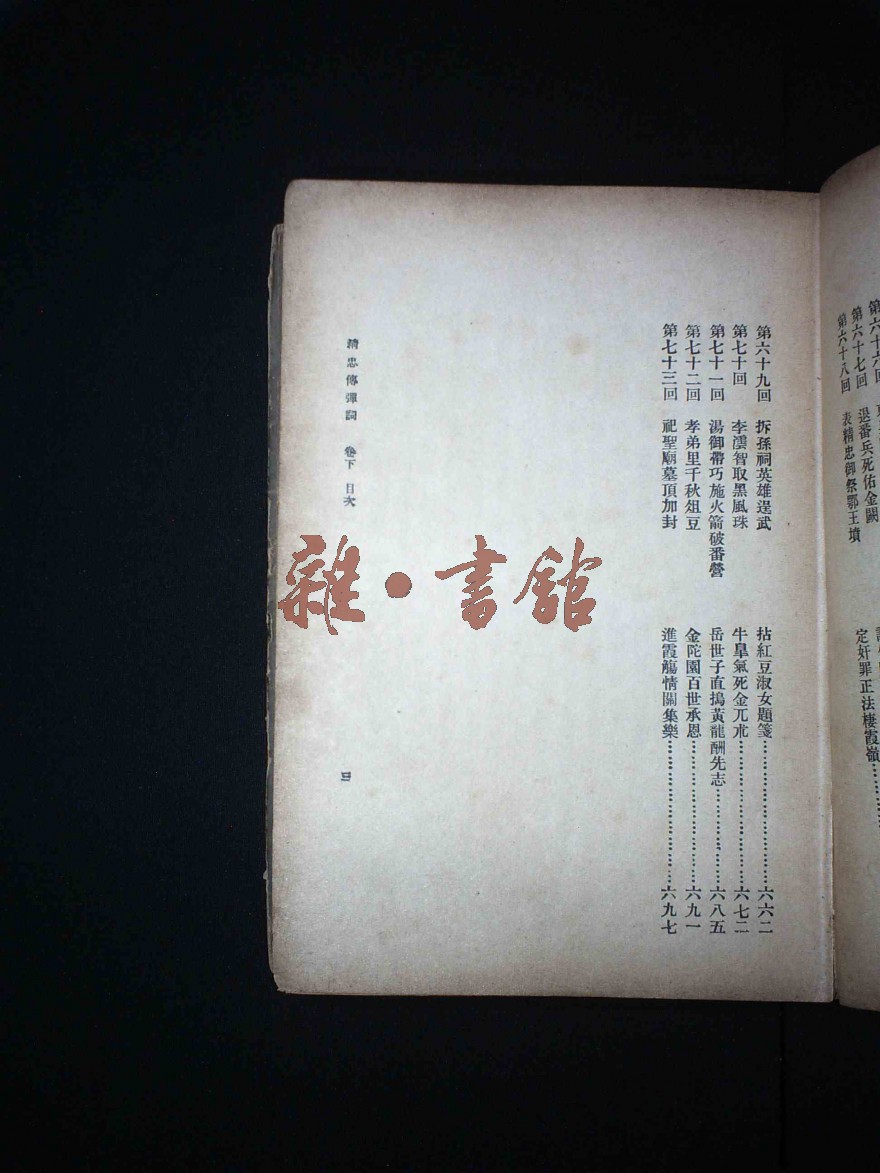 第六十七回 退番兵死佑金闕
第六十八回 表精忠御祭鄂王墳 定奸罪正法棲霞嶺
第六十九回 拆孫祠英雄逞武 拈紅豆淑女題箋 六六二
第七十回 李澐智取黑風珠 牛臯氣死金兀朮 六七二
第七十一回 湯御帶巧施火箭破番營 岳世子直搗黃龍酬先志 六八五
第七十二回 孝弟里千秋俎豆 金陀園百世承恩 六九一
第七十三回 祀聖廟墓頂加封 進霞觴情關集樂 六九七
精忠傳彈詞 卷下 目次 四
雜·書館